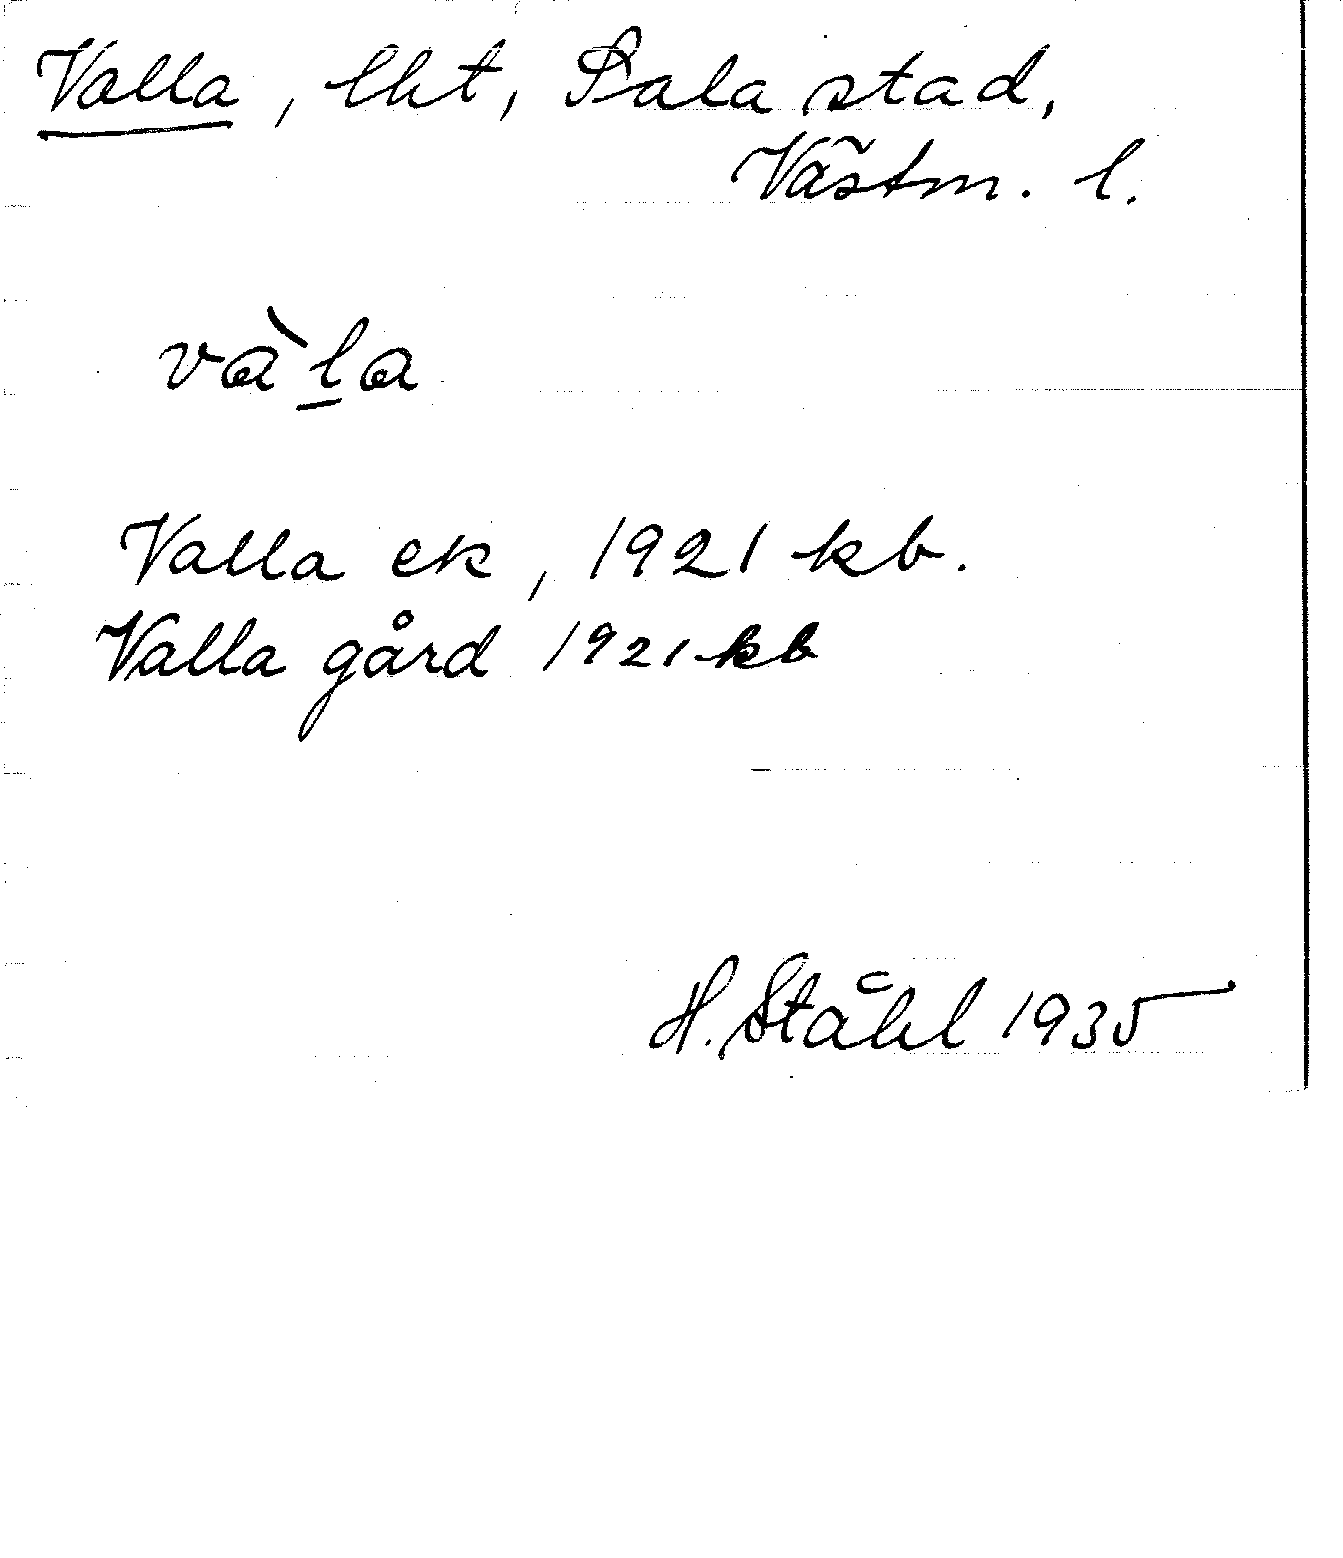 Valla, lht, Sala stad,
Västm. l.
và̱la
Valla ek, 1921 kb.
Valla gård 1921 kb
H. Ståhl 1935